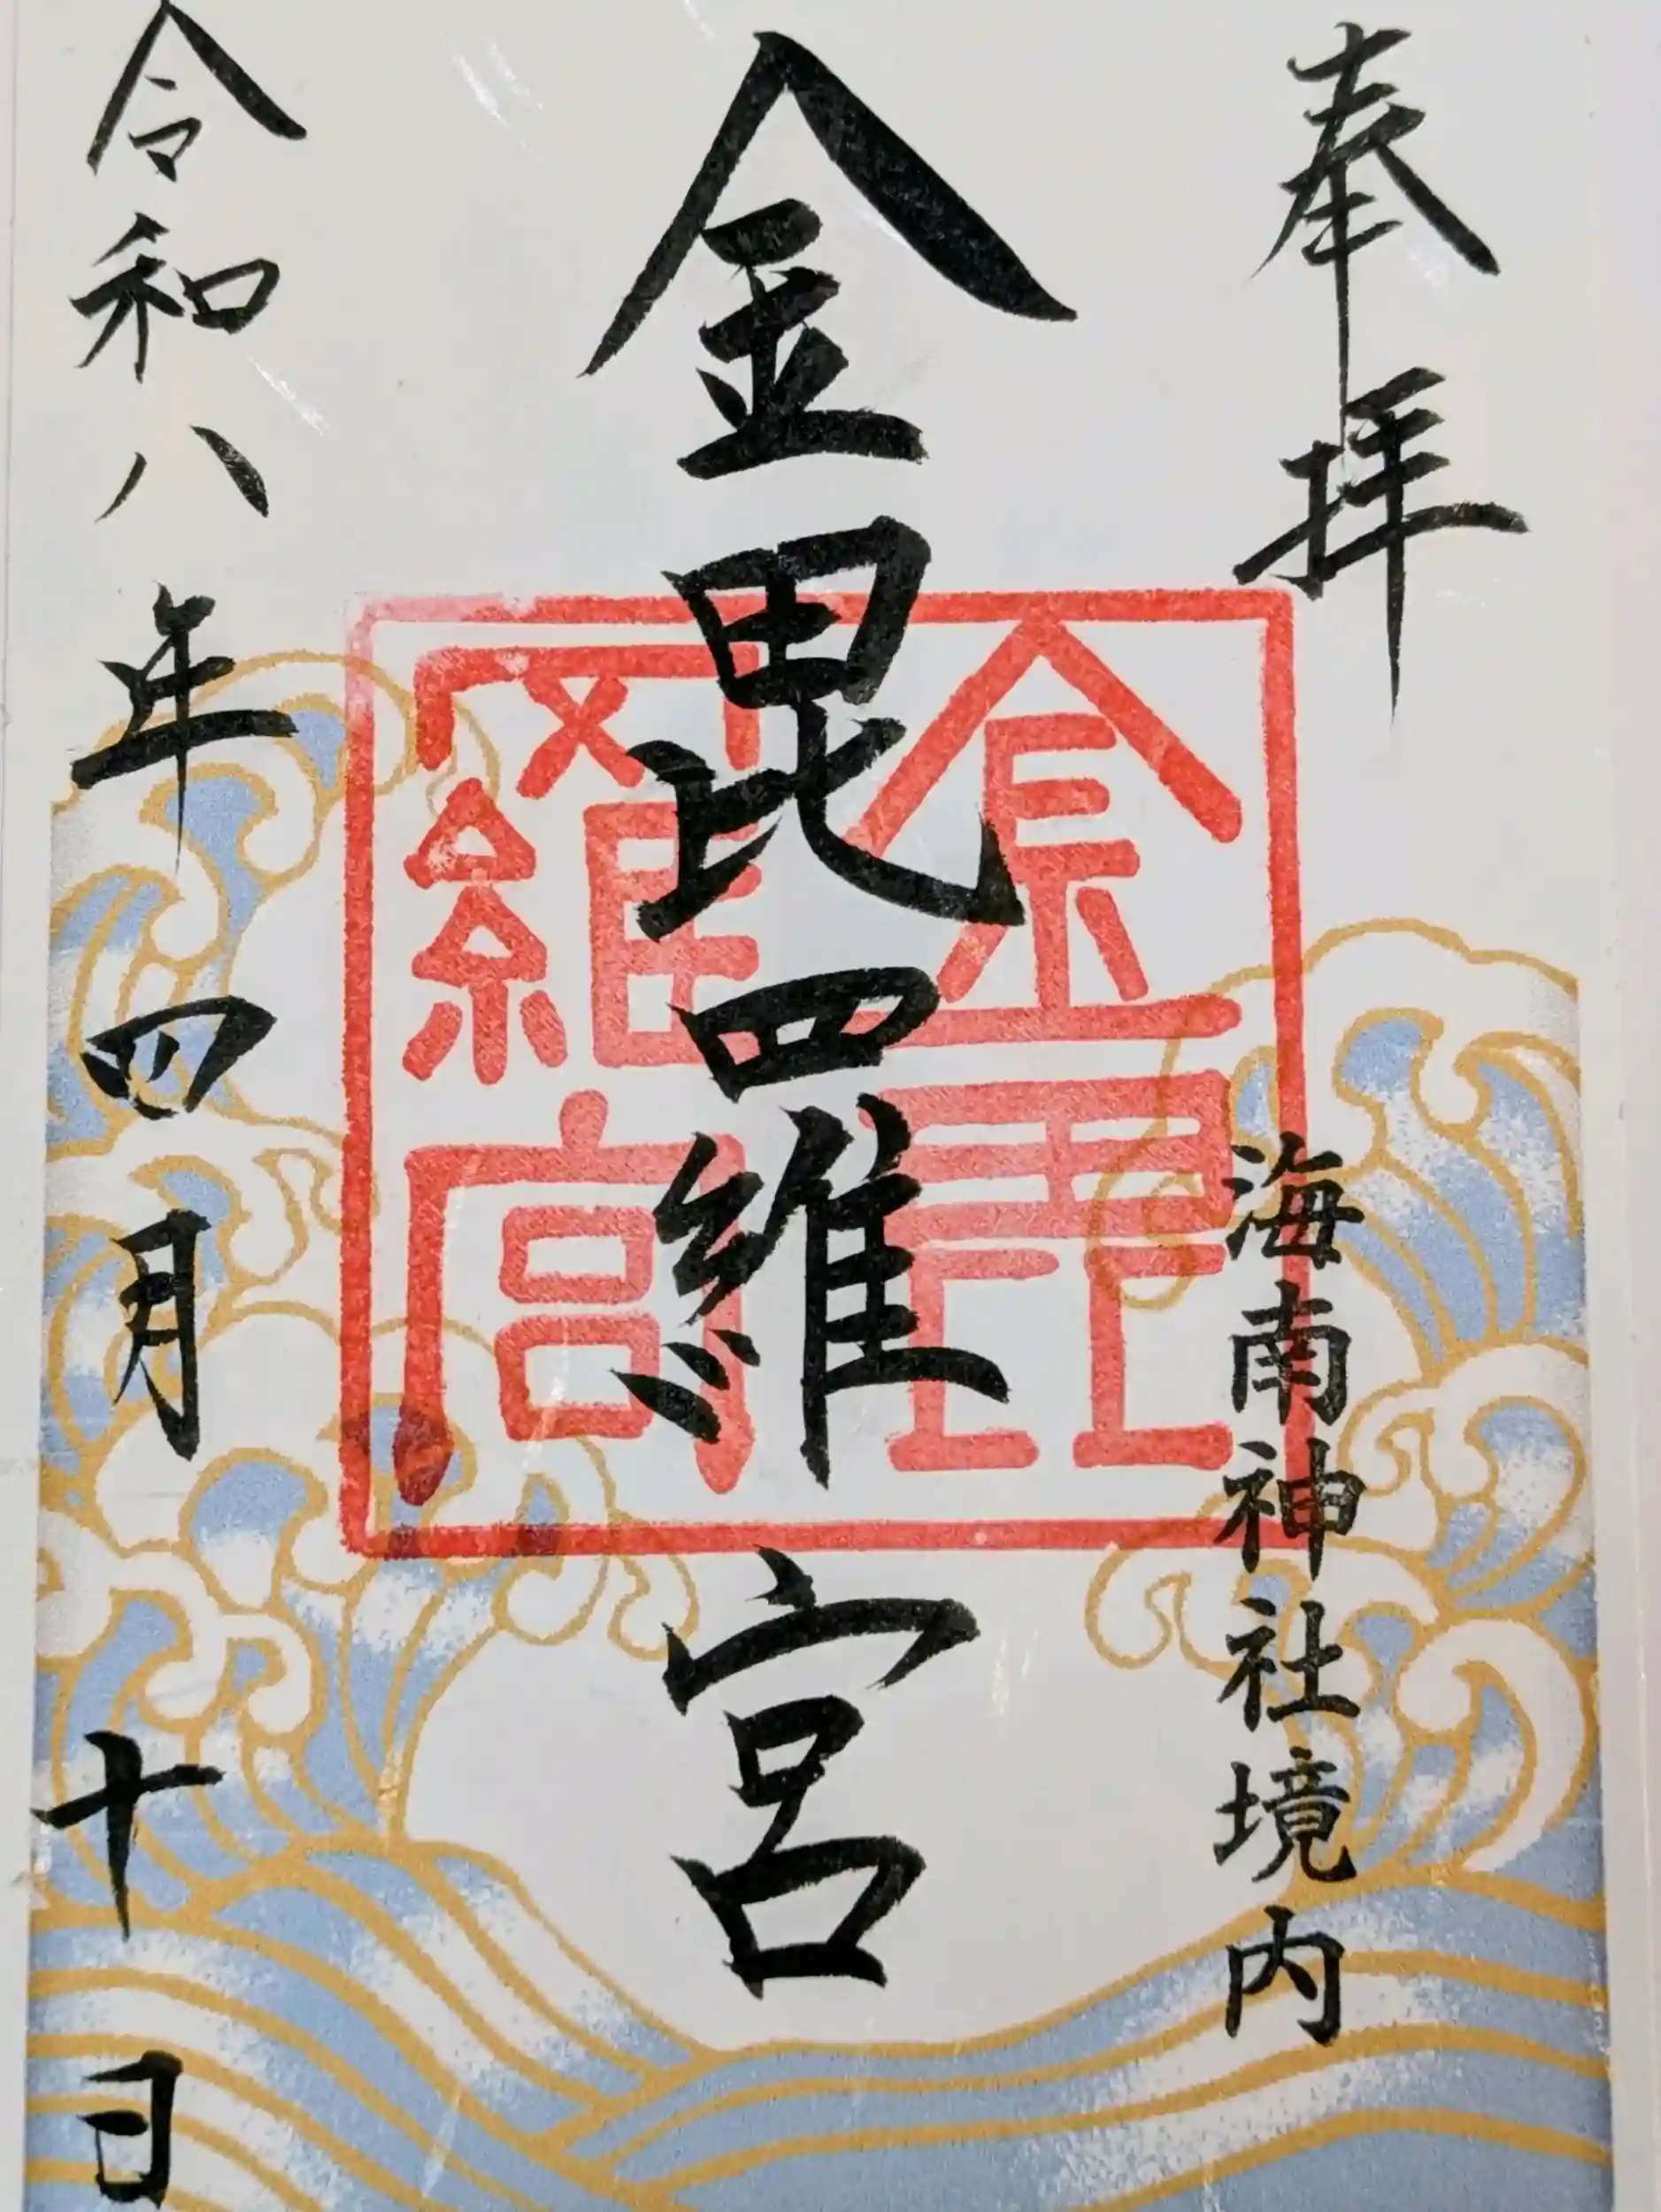 奉拝
海南神社境内
金毘羅宮
金毘
羅宮
令和八年四月十日